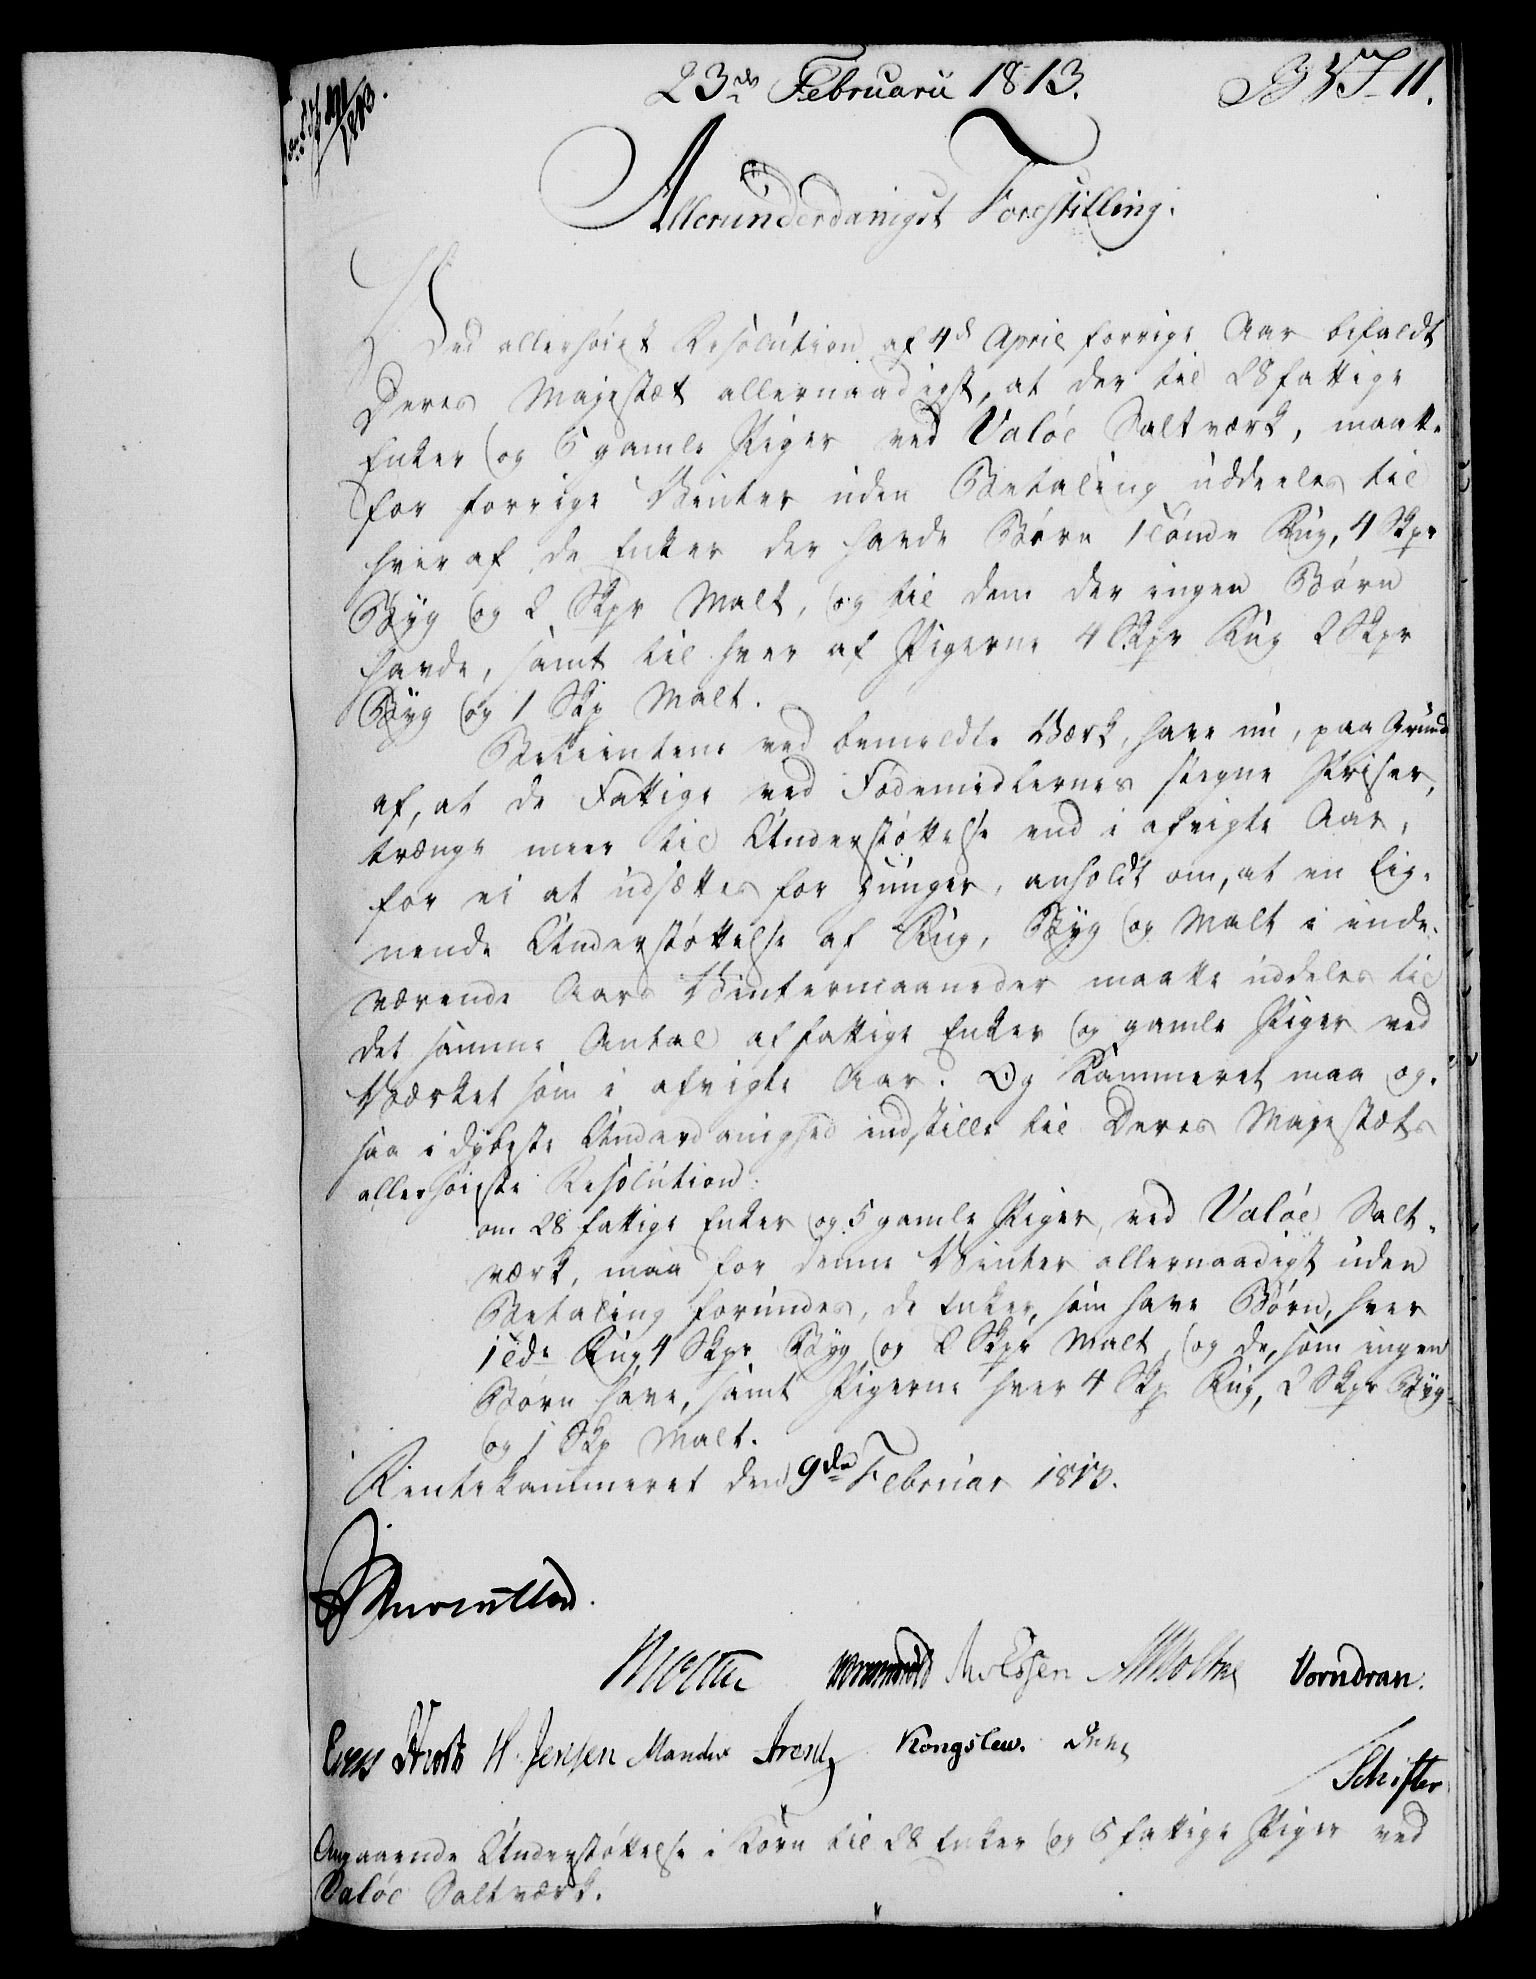 23de Februarii 1813.
Allerunderdanigst Forestilling.
Ved allerhøiest Resolution af 4d April forrige Aar befaldt
Deres Majestæt allernaadigst, at der til 28 fattige
Enker og 5 gamle Piger ved Valöe Saltværk, maatte
for forrige Vinter uden Betaling uddeeles til
hver af de Enker der havde Børn 1 Tønde Rug, 4 Skpr
Byg og 2 Skpr Malt, og til dem der ingen Børn
havde, samt til hver af Pigerne 4 Skpr Rug 2 Skpr
Byg og 1 Skp Malt.
Betientene ved bemeldte Værk, have nu, paa Grund
af, at de Fattige ved Fødemidlernes stegne Priser,
trænge meer til Understøttelse end i afvigte Aar,
for ei at udsættes for Hunger, anholdt om, at en lig-
nende Understøttelse af Rug, Byg og Malt i inde-
værende Aars Vintermaaneder maatte uddeles til
det samme Antal af fattige Enker og gamle Piger ved
Værket som i afvigte Aar. Og Kammeret maa og-
saa i dybeste Underdanighed indstille til Deres Majestæts
allerhøieste Resolution:
om 28 fattige Enker og 5 gamle Piger, ved Valöe Salt-
værk, maa for denne Vinter allernaadigst uden
Betaling forundes, de Enker, som have Børn, hver
1 Tde Rug 4 Skpr Byg og 2 Skpr Malt, og de, som ingen
Børn have, samt Pigerne hver 4 Skp Rug, 2 Skpr Byg
og 1 Skp Malt.
Rentekammeret den 9de Februar 1813.
Moltke Wormskiold AWMoltke Vorndran.
H. Jensen Arentz Kongslew.
Schifter
Angaaende Understøttelse i Korn til 28 Enker og 5 fattige Piger ved
Valöe Saltværk.